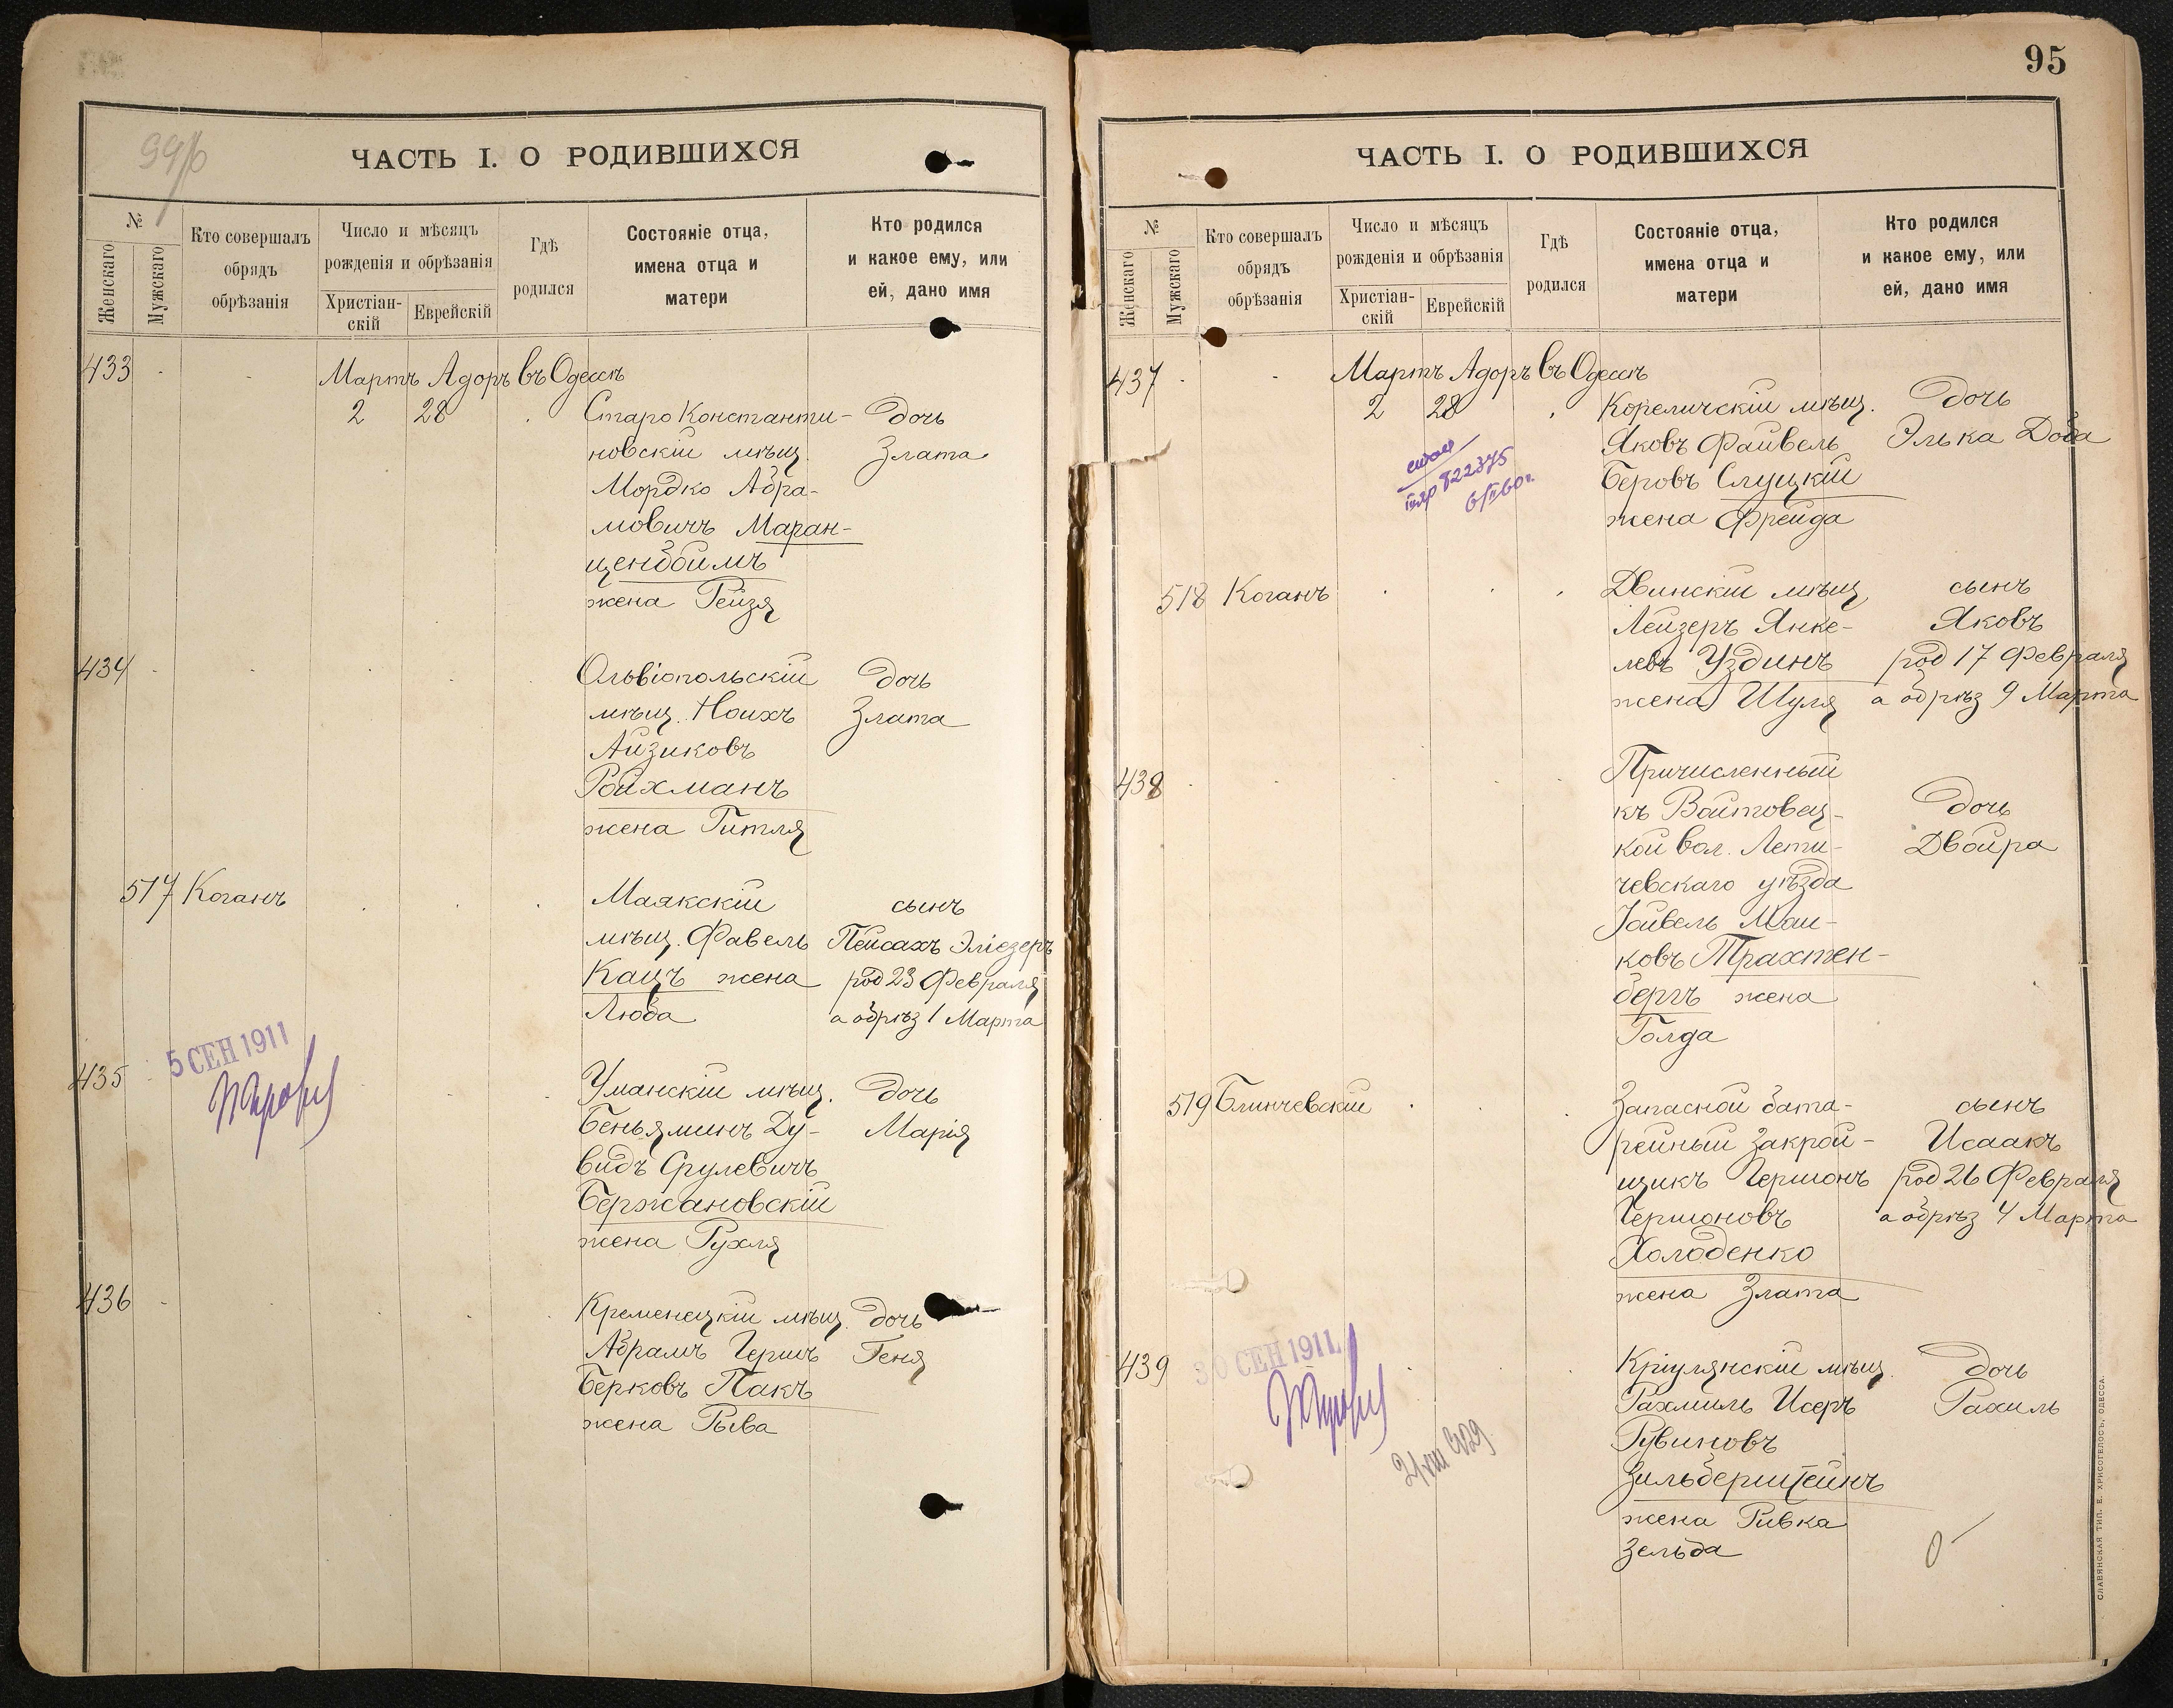 ЧАСТЬ I. О РОДИВШИХСЯ
№
Женскаго
Мужскаго
Кто совершалъ
обрядъ
обрѣзанія
Число и мѣсяцъ
рожденія и обрѣзанія
Христіан-
скій
Еврейскій
Гдѣ
родился
Состояніе отца,
имена отца и
матери
Кто родился
и какое ему, или
ей, дано имя
433
Мартъ Адоръ въ Одессѣ
2 28 Старо Константи- дочь
новскій мѣщ. Злата
Мордко Абра-
мовичъ Маран-
ценбоимъ
жена Рейзя
434 Ольвіопольскій дочь
мѣщ. Ноихъ Злата
Айзиковъ
Ройхманъ
жена Гитля
517 Коганъ Маякскій сынъ
мѣщ. Фавель Пейсахъ Эліезеръ
Кацъ жена род 23 Февраля
Люба а обрѣз 1 Марта
5 СЕН 1911
435 Уманскій мѣщ. дочь
Беньяминъ Ду- Марія
видъ Срулевичъ
Бержановскій
жена Рухля
436 Кременецкій мѣщ. дочь
Абрамъ Гершъ Геня
Берковъ Пакъ
жена Рыва
95
ЧАСТЬ I. О РОДИВШИХСЯ
№
Женскаго
Мужскаго
Кто совершалъ
обрядъ
обрѣзанія
Число и мѣсяцъ
рожденія и обрѣзанія
Христіан-
скій
Еврейскій
Гдѣ
родился
Состояніе отца,
имена отца и
матери
Кто родился
и какое ему, или
ей, дано имя
437 Мартъ Адоръ въ Одессѣ
2 28 Кореличскій мѣщ. дочь
Яковъ Файвель Элька Доба
Беровъ Слуцкій
жена Фрейда
822375
6/II 60 г.
518 Коганъ Двинскій мѣщ сынъ
Лейзеръ Янке- Яковъ
левъ Уздинъ род 17 Февраля
жена Шуля а обрѣз 9 Марта
438 Причисленный
къ Войтовец- дочь
кой вол. Лети- Двойра
чевскаго уѣзда
ковъ Трахтен-
бергъ жена
Голда
519 Блинчевскій Запасной бата- сынъ
рейный закрой- Исаакъ
щикъ Гершонъ род 26 Февраля
Гершоновъ а обрѣз 4 Марта
Холоденко
жена Злата
30 СЕН 1911
439 Кріулянскій мѣщ. дочь
Рахмиль Исеръ Рахиль
Рувиновъ
Зильберштейнъ
жена Ривка
Зельда
СЛАВЯНСКАЯ ТИП. Е. ХРИСОГЕЛОСЪ, ОДЕССА.